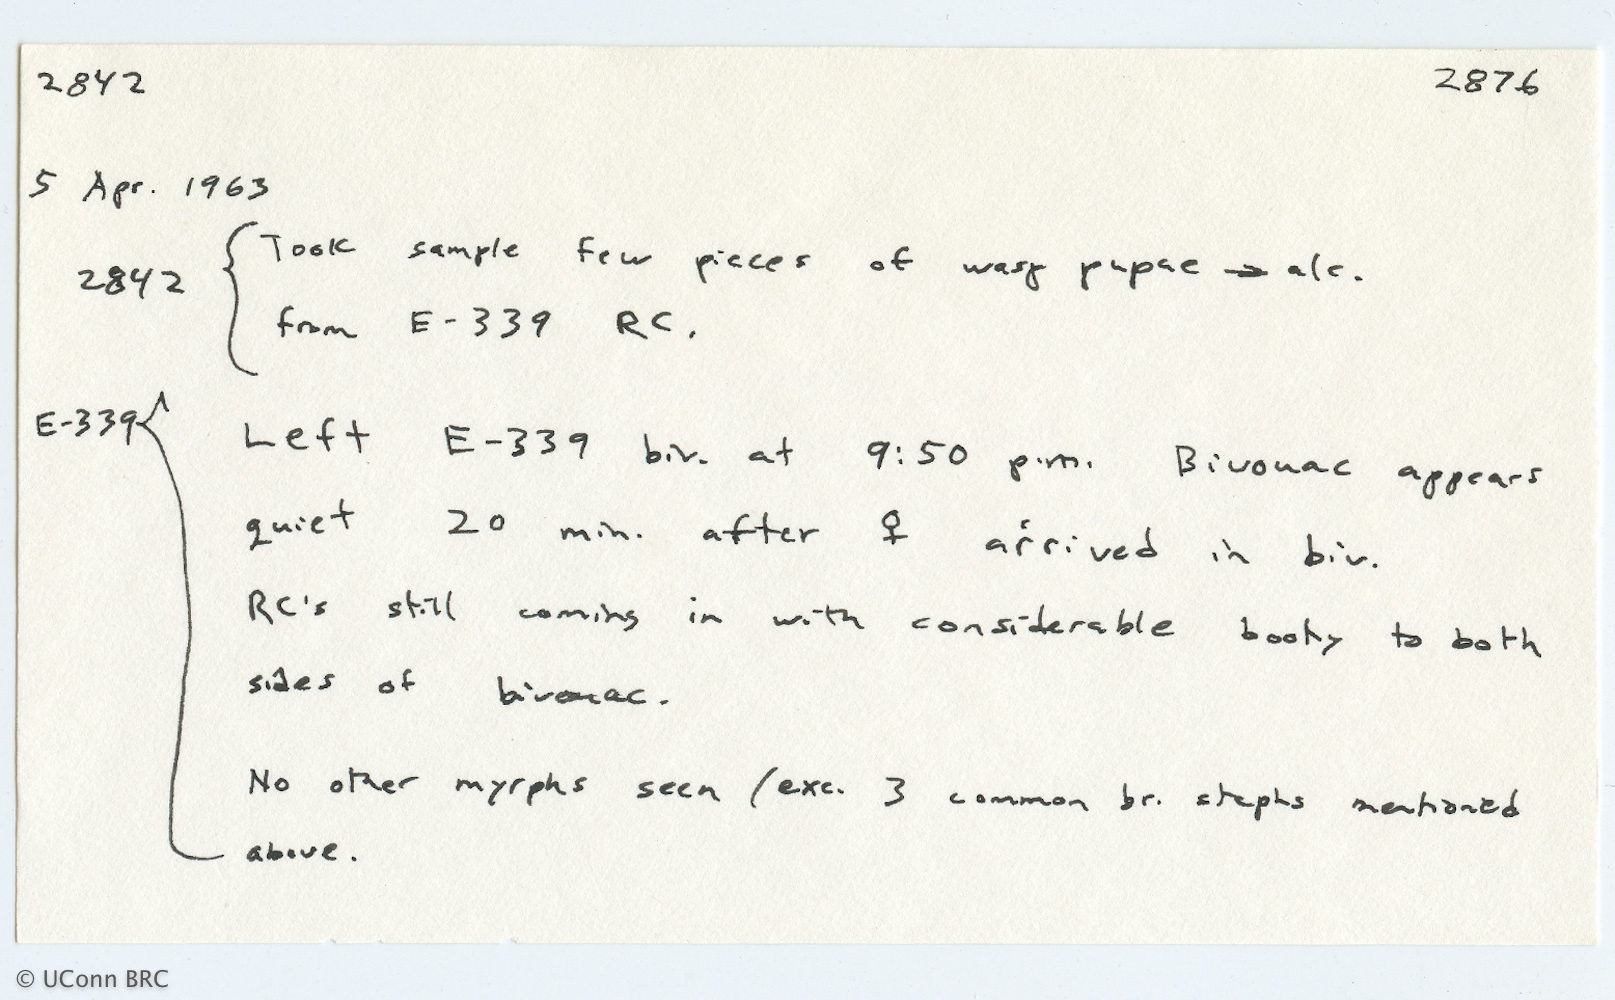 2842 2876
5 Apr. 1963
2842 { Took sample few pieces of wasp pupae → alc.
from E-339 RC.
E-339 { Left E-339 biv. at 9:50 p.m. Bivouac appears
quiet 20 min. after ♀ arrived in biv.
RC's still coming in with considerable booty to both
sides of bivouac.
No other myrphs seen (exc. 3 common br. staphs mentioned
above.
© UConn BRC